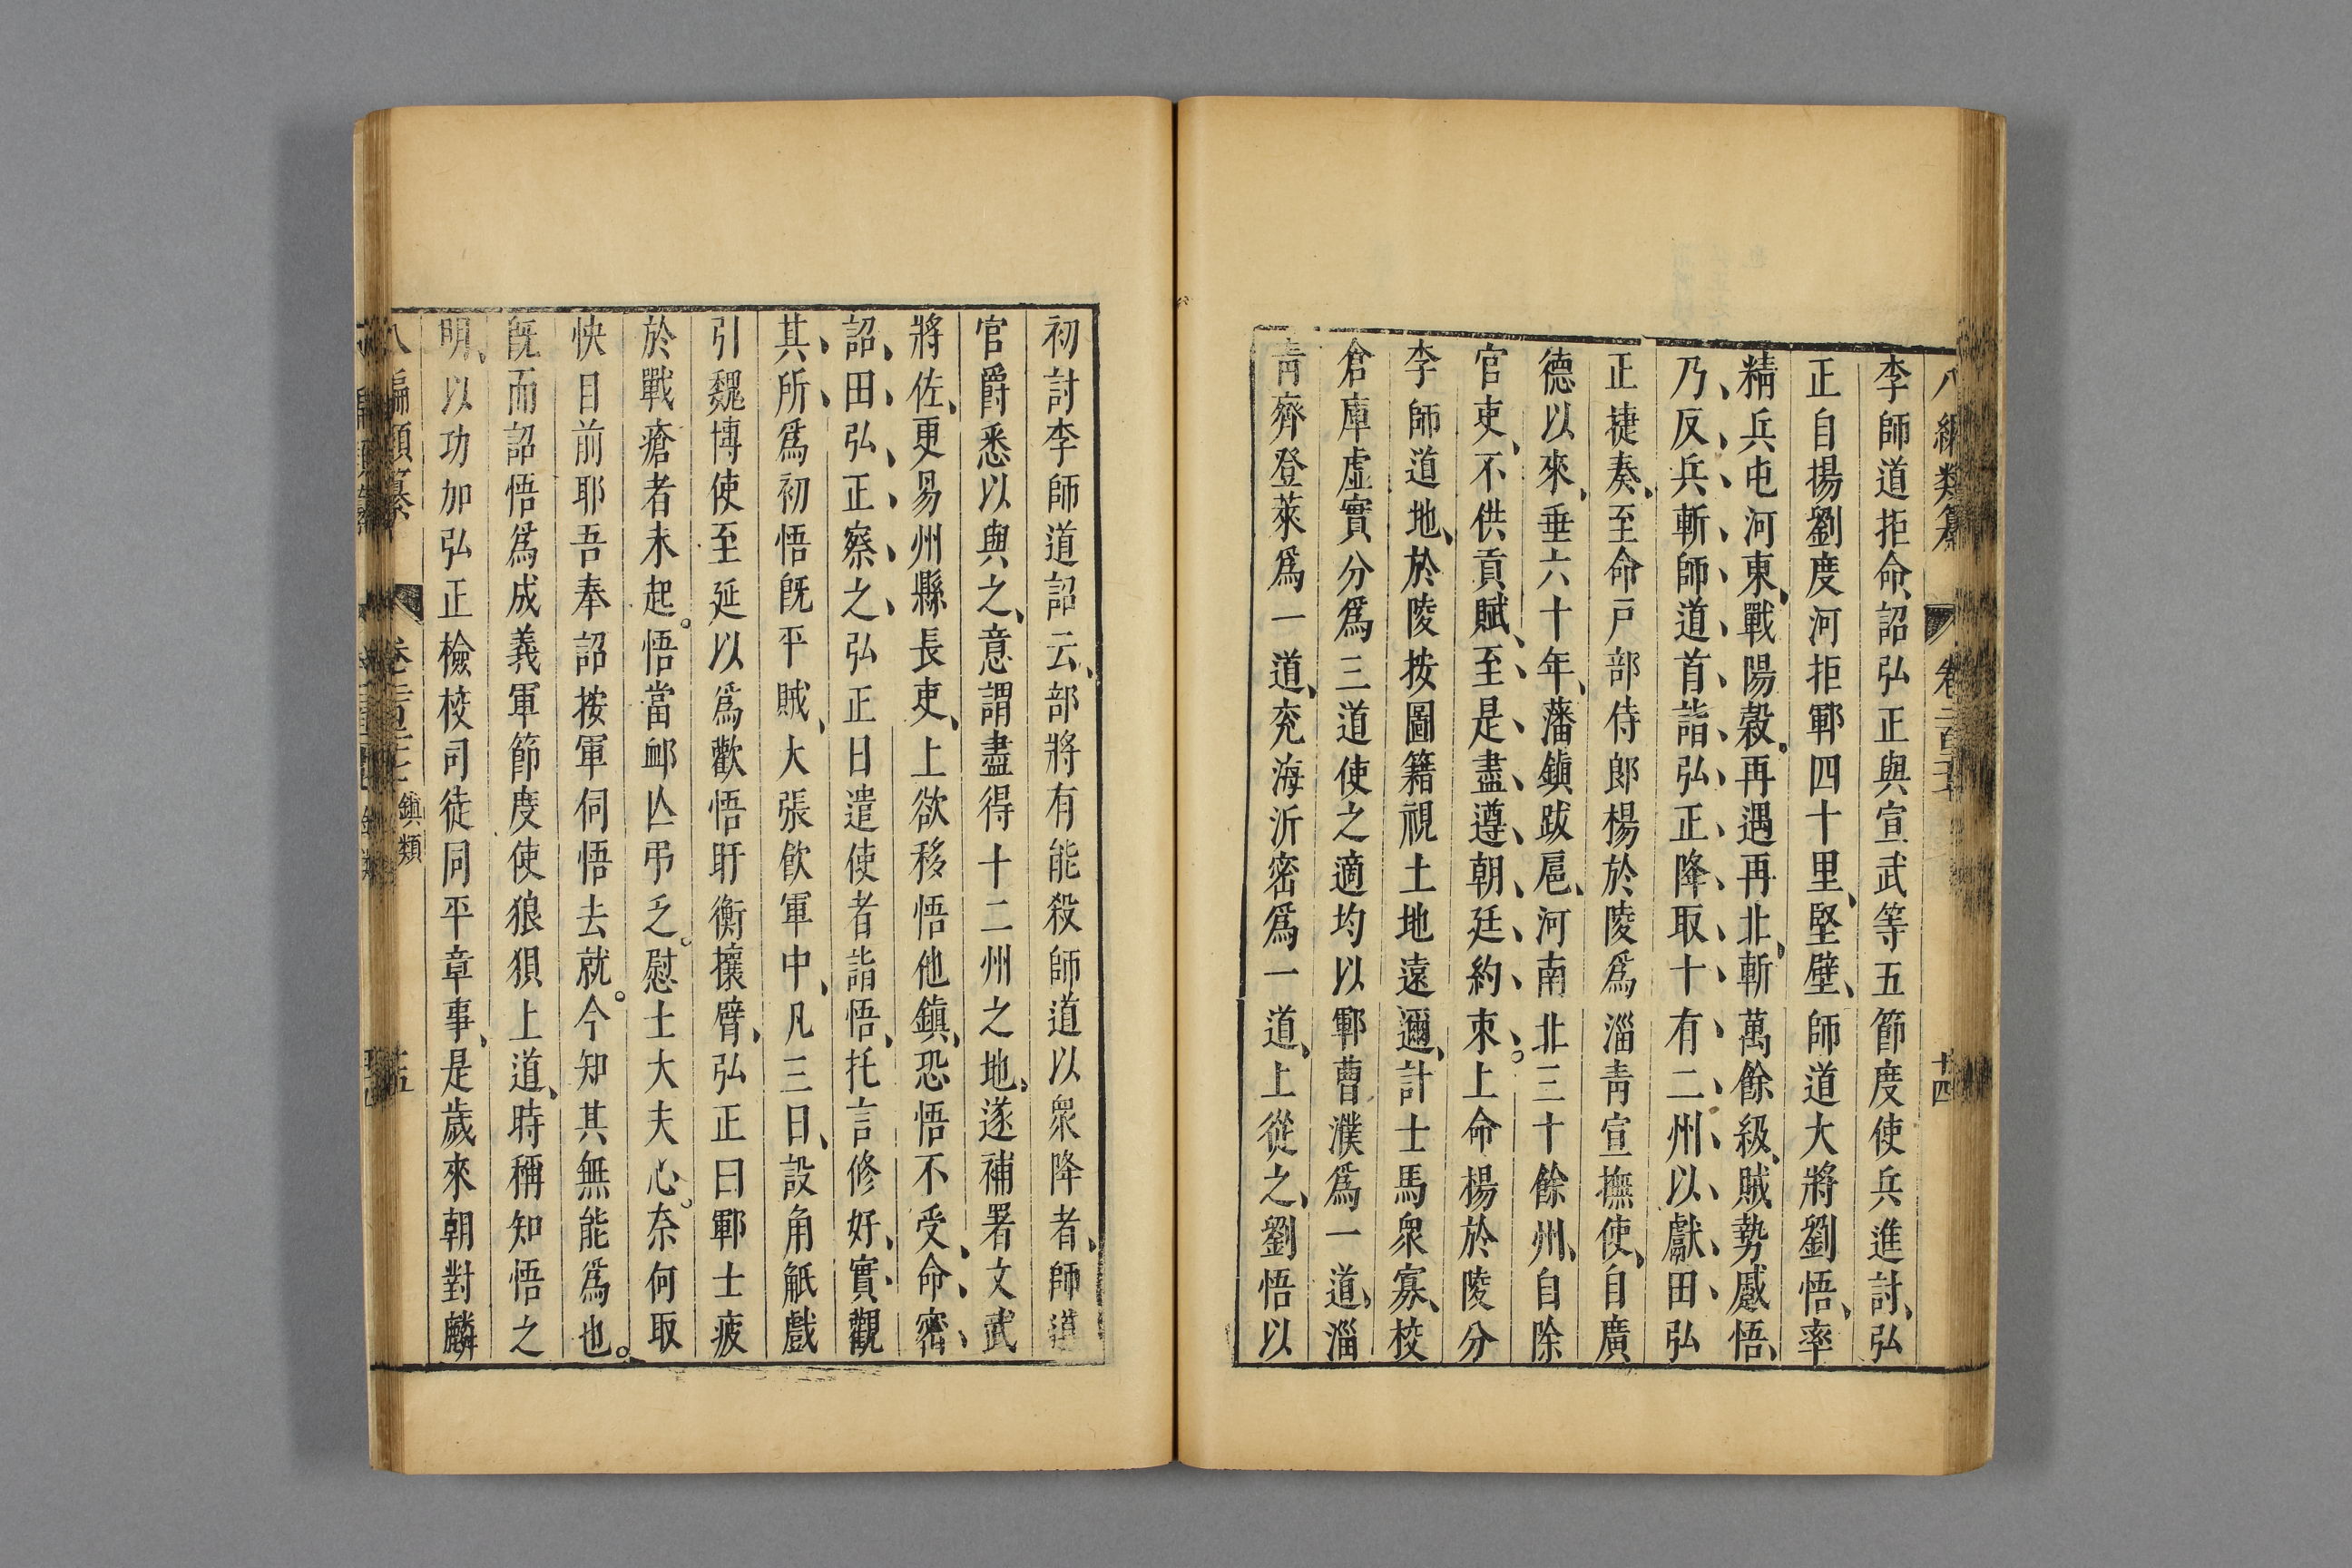 八編類纂 卷二百三十五 十四
李師道拒命、詔弘正與宣武等五節度使兵進討、弘
正自揚劉度河拒鄆四十里、堅壁、師道大將劉悟、率
精兵屯河東、戰陽穀。再遇再北、斬萬餘級、賊勢蹙悟、
乃反兵斬師道首詣弘正降取十有二州以獻田弘
正捷奏、至命戸部侍郎楊於陵爲淄青宣撫使、自廣
德以來、垂六十年、藩鎮跋扈、河南北三十餘州、自除
官吏、不供貢賦、至是盡遵朝廷約束。上命楊於陵分
李師道地、於陵按圖籍視土地遠邇、計士馬衆寡、校
倉庫虛實分爲三道使之適均以鄆曹濮爲一道、淄
青齊登萊爲一道、兗海沂密爲一道、上從之、劉悟以
初討李師道詔云、部將有能殺師道以衆降者、師道
官爵悉以與之、意謂盡得十二州之地、遂補署文武
將佐、更易州縣長吏、上欲移悟他鎮、恐悟不受命、密
詔田弘正察之、弘正日遣使者詣悟、托言修好、實觀
其所爲初悟既平賊、大張飲軍中、凡三日、設角觝戲
引魏博使至延以爲歡悟盱衡攘臂、弘正曰鄆士疲
於戰瘡者未起。悟當卹亾弔乏。慰士大夫心。奈何取
快目前耶吾奉詔按軍伺悟去就。今知其無能爲也。
既而詔悟爲成義軍節度使狼狽上道、時稱知悟之
明、以功加弘正檢校司徒同平章事、是歲來朝對麟
八編類纂 鎮類